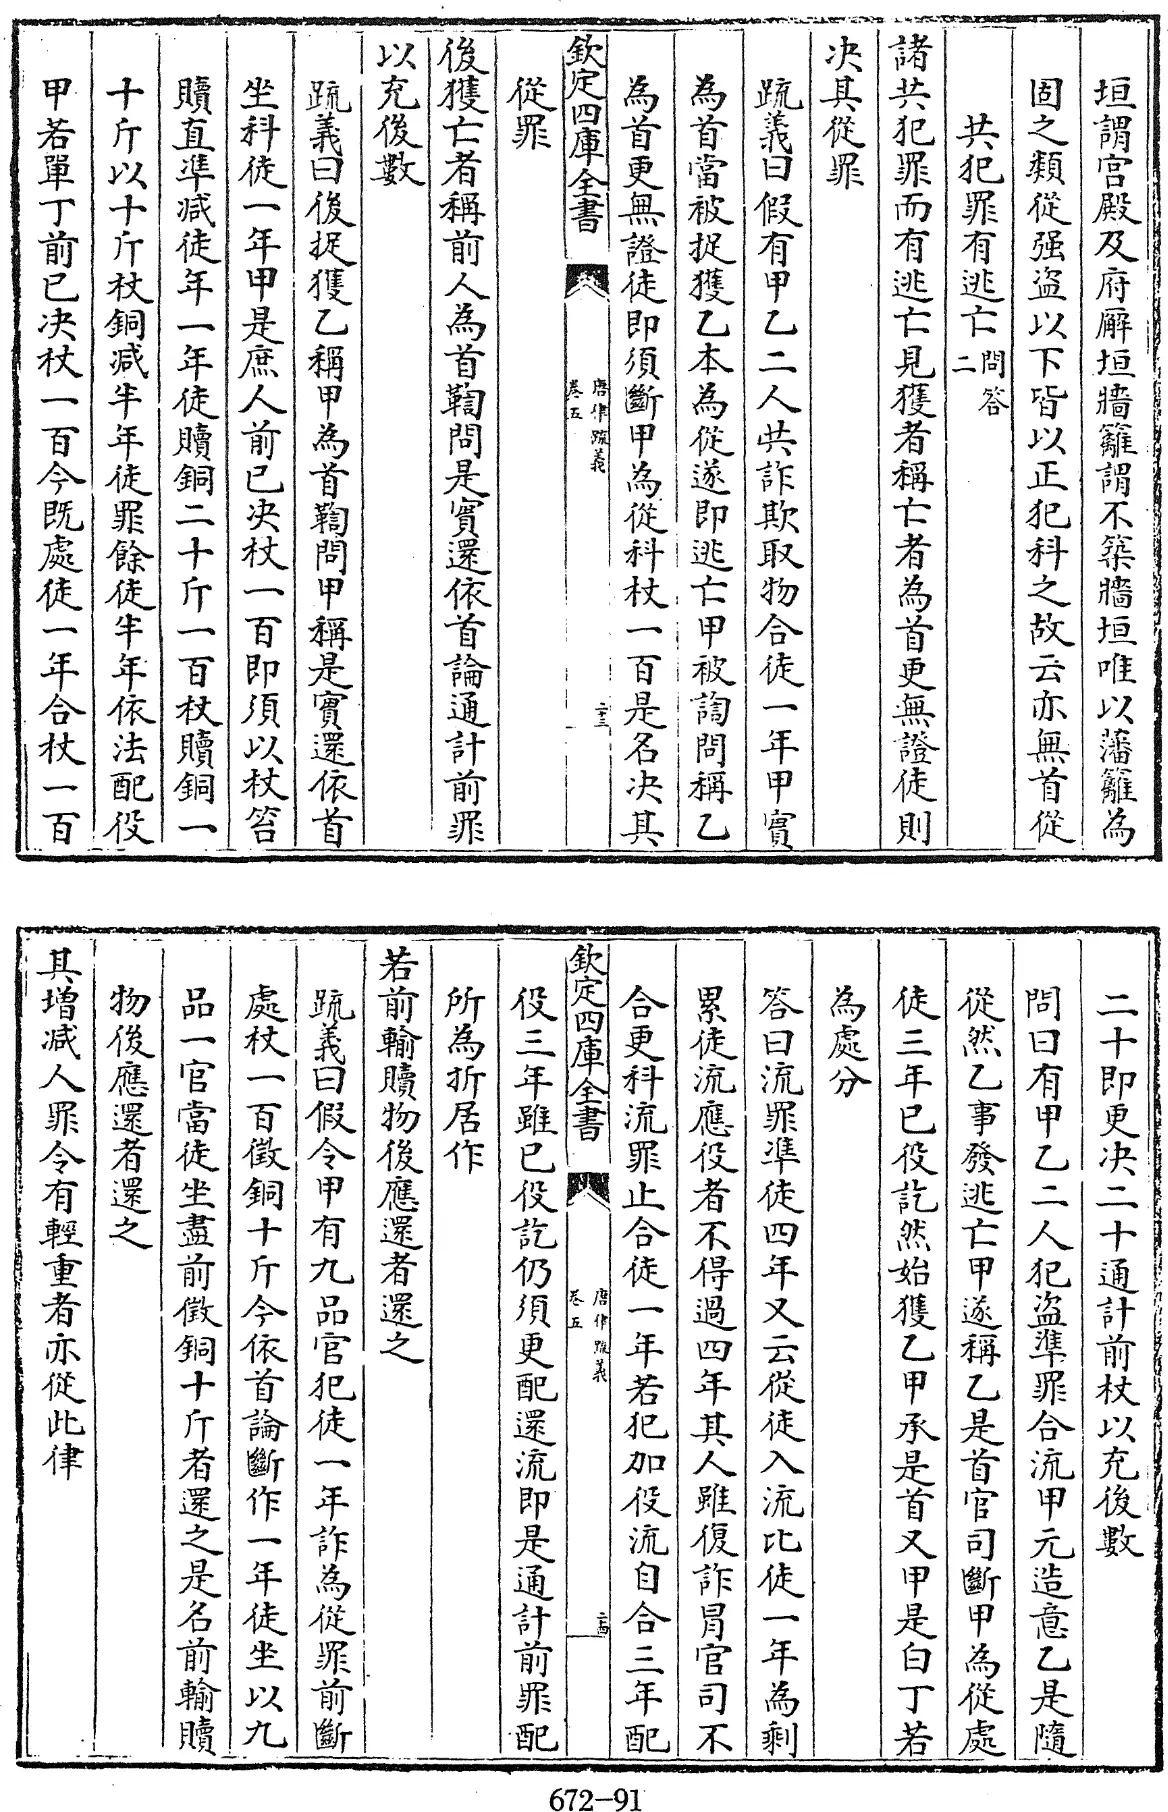 垣謂宫殿及府廨垣牆籬謂不築牆垣唯以藩籬為
固之類從强盗以下皆以正犯科之故云亦無首從
共犯罪有逃亡問答二
諸共犯罪而有逃亡見獲者稱亡者為首更無證徒則
决其從罪
疏義曰假有甲乙二人共詐欺取物合徒一年甲實
為首當被捉獲乙本為從遂即逃亡甲被詢問稱乙
為首更無證徒即須斷甲為從科杖一百是名决其
欽定四庫全書
唐律疏義
卷五
二十三
從罪
後獲亡者稱前人為首鞫問是實還依首論通計前罪
以充後數
疏義曰後捉獲乙稱甲為首鞫問甲稱是實還依首
坐科徒一年甲是庶人前已决杖一百即須以杖笞
贖直凖减徒年一年徒贖銅二十斤一百杖贖銅一
十斤以十斤杖銅减半年徒罪餘徒半年依法配役
甲若單丁前已决杖一百今既處徒一年合杖一百
二十即更决二十通計前杖以充後數
問曰有甲乙二人犯盗凖罪合流甲元造意乙是隨
從然乙事發逃亡甲遂稱乙是首官司斷甲為從處
徒三年已役訖然始獲乙甲承是首又甲是白丁若
為處分
答曰流罪凖徒四年又云從徒入流比徒一年為剩
累徒流應役者不得過四年其人雖復詐冐官司不
合更科流罪止合徒一年若犯加役流自合三年配
欽定四庫全書
唐律疏義
卷五
二十四
役三年雖已役訖仍須更配還流即是通計前罪配
所為折居作
若前輸贖物後應還者還之
疏義曰假令甲有九品官犯徒一年詐為從罪前斷
處杖一百徵銅十斤今依首論斷作一年徒坐以九
品一官當徒坐盡前徵銅十斤者還之是名前輸贖
物後應還者還之
其增减人罪令有輕重者亦從此律
672-91